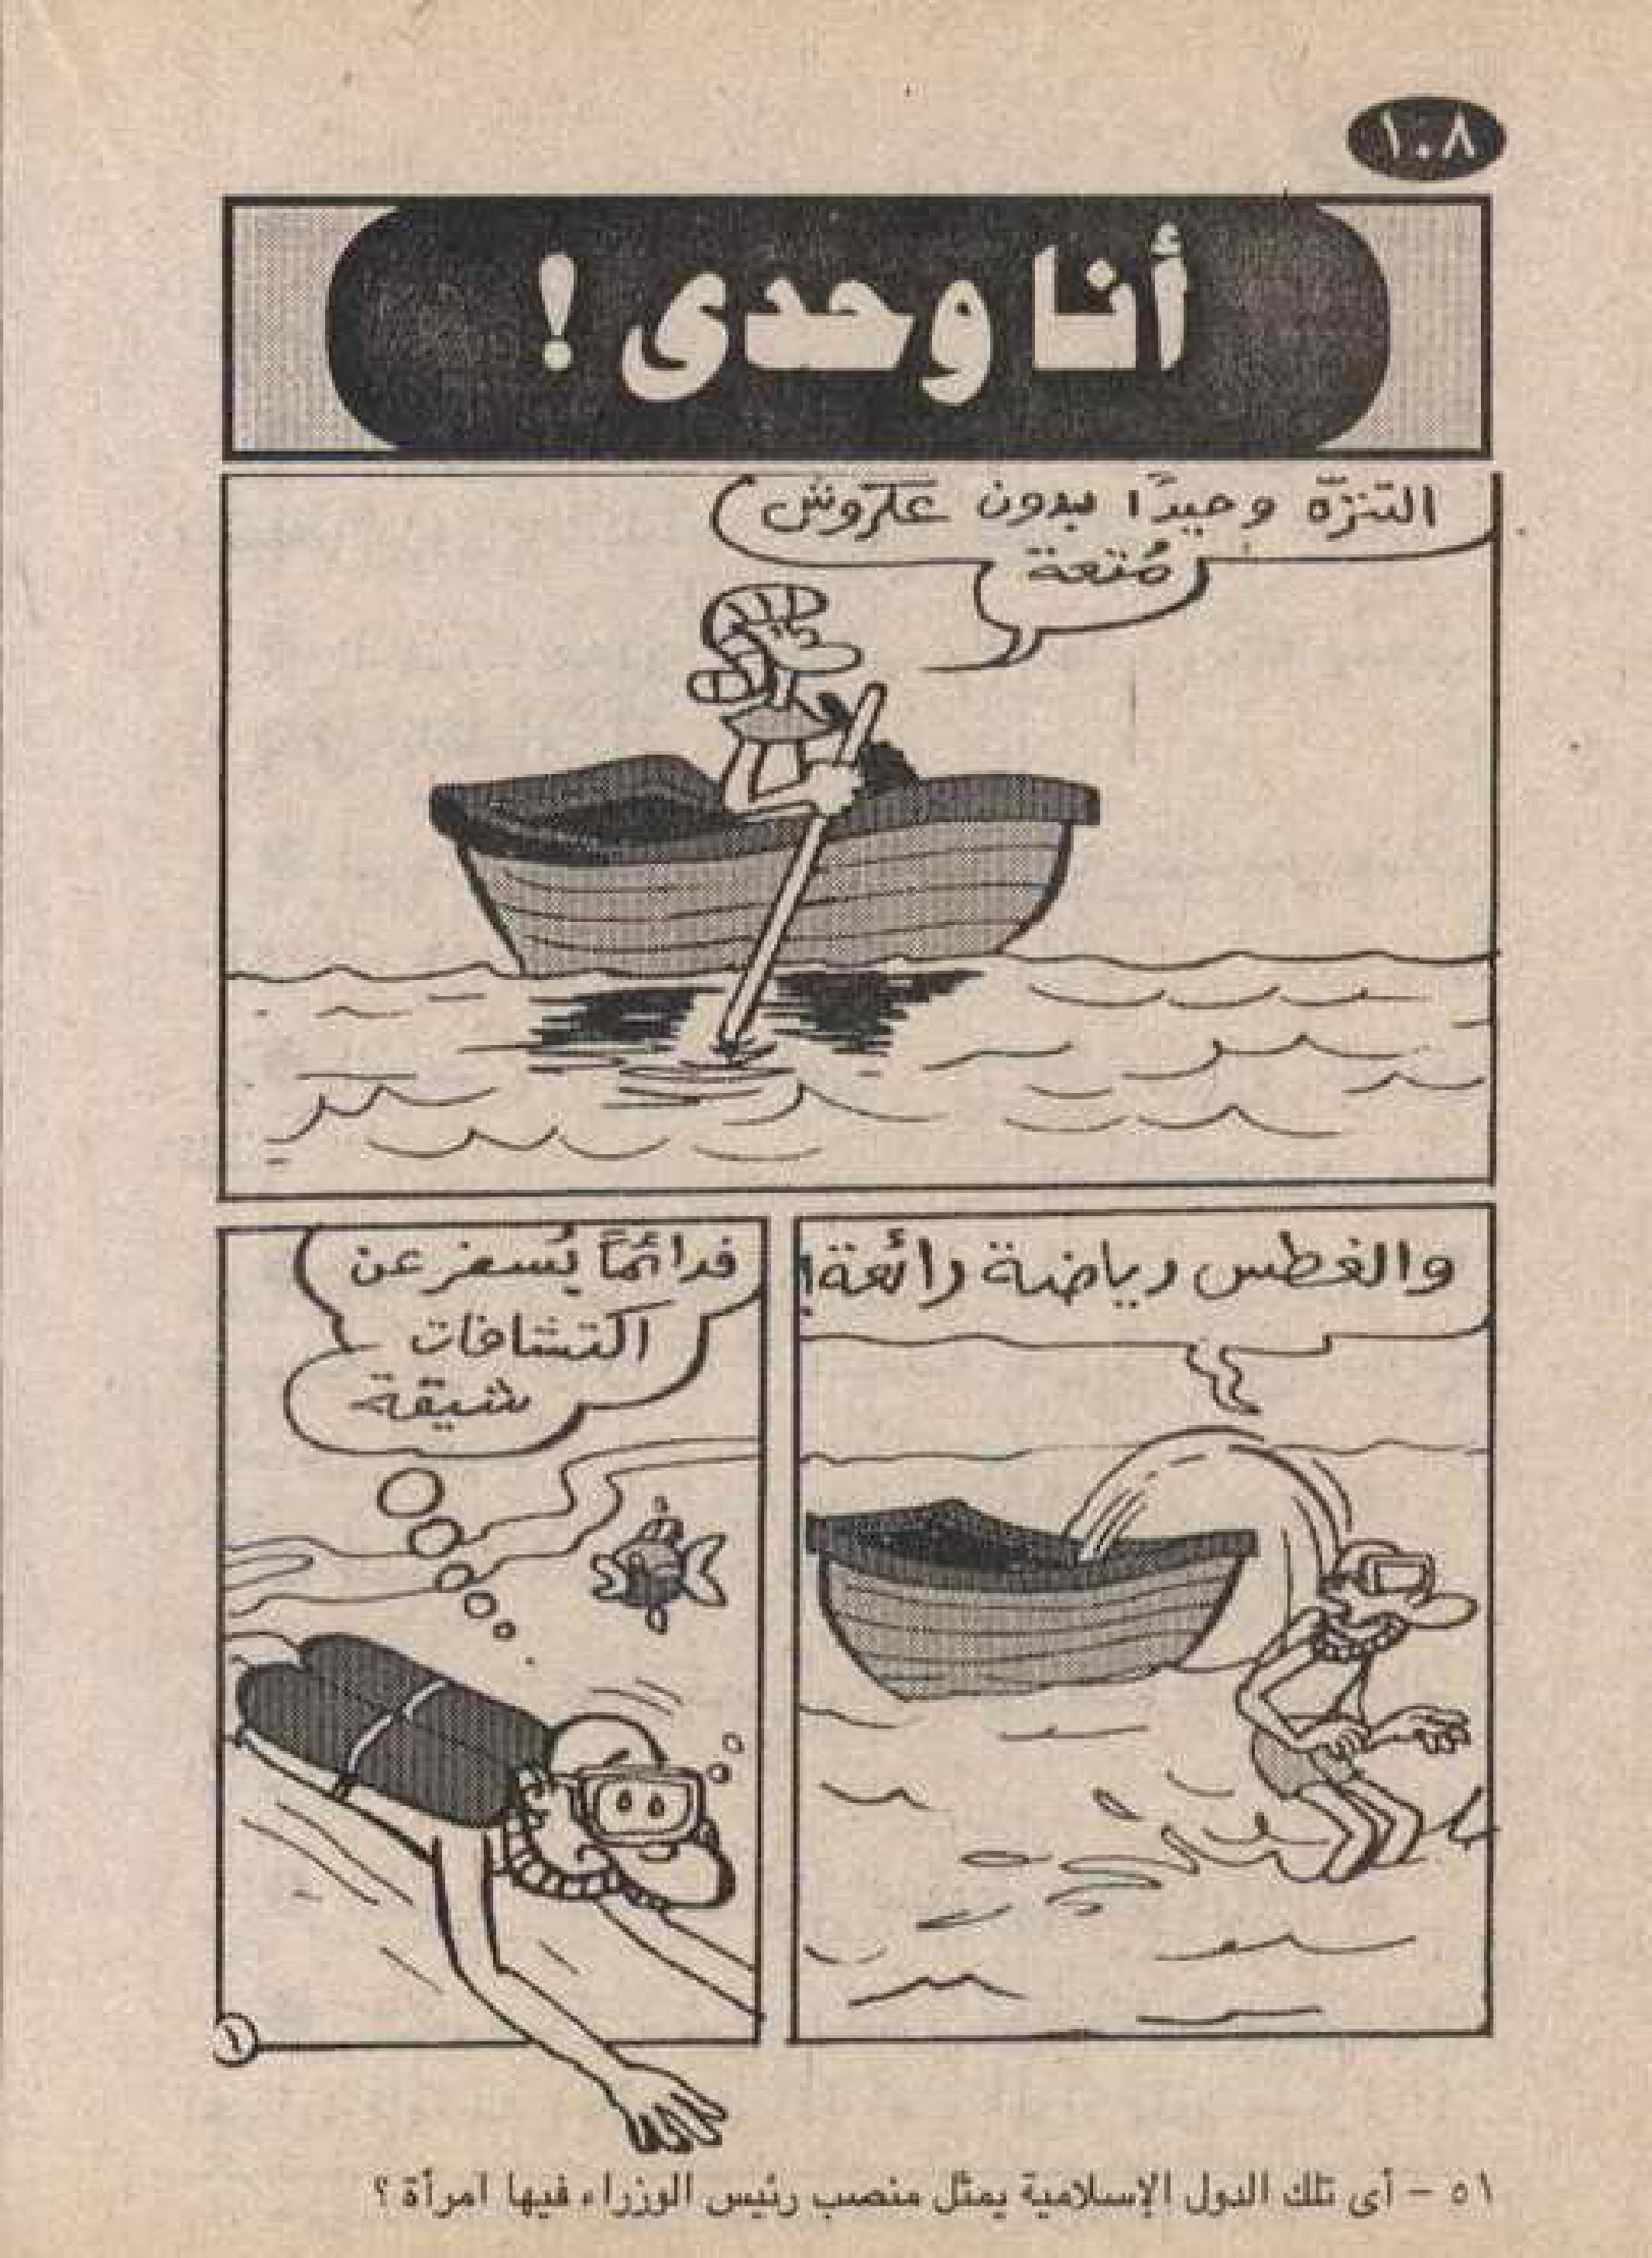 ١٠٨
أنا وحدى !
التنزّه وحيدًا بدون عكروش
مُتعة
والغطس رياضة رائعة!
فدائمًا يُسفر عن
اكتشافات
شيقة
١
٥١ - أى تلك الدول الإسلامية يمثل منصب رئيس الوزراء فيها امرأة ؟